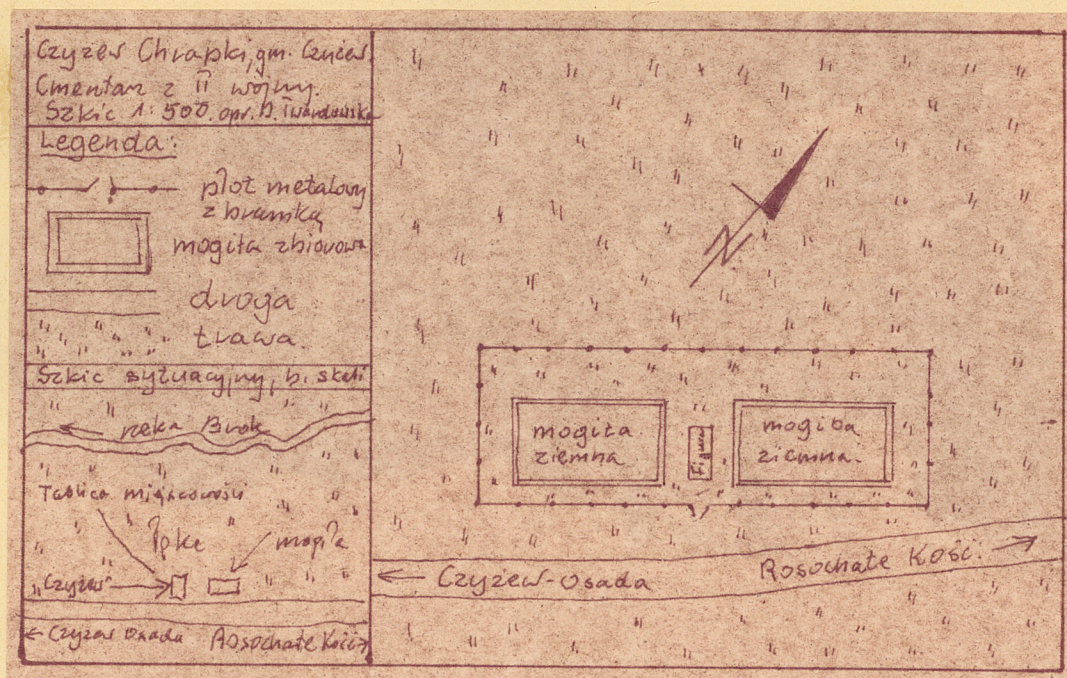 Czyżew Chrapki, gm. Czyżew
Cmentarz z II wojny.
Szkic 1:500. opr. D. Twardowska
Legenda:
płot metalowy
z bramką
mogiła zbiorowa
droga
trawa.
Szkic sytuacyjny, b. skali
rzeka Brok
Tablica miejscowości
łąka
mogiła
"Czyżew"
Czyżew Osada
Rosochate Kości
N
mogiła
ziemna
Figura
mogiła
ziemna.
Czyżew-Osada
Rosochate Kość.